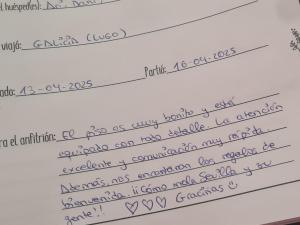 l huésped(es):
viajó: GALICIA (LUGO)
Partió: 16-04-2025
ada: 13-04-2025
ra el anfitrión: El piso es muy bonito y está
equipado con todo detalle. La atención
excelente y comunicación muy rápida.
Además, nos encantaron los regalos de
bienvenida. ¡¡Cómo mola Sevilla y su
gente!! ♡♡♡ Gracias ☺